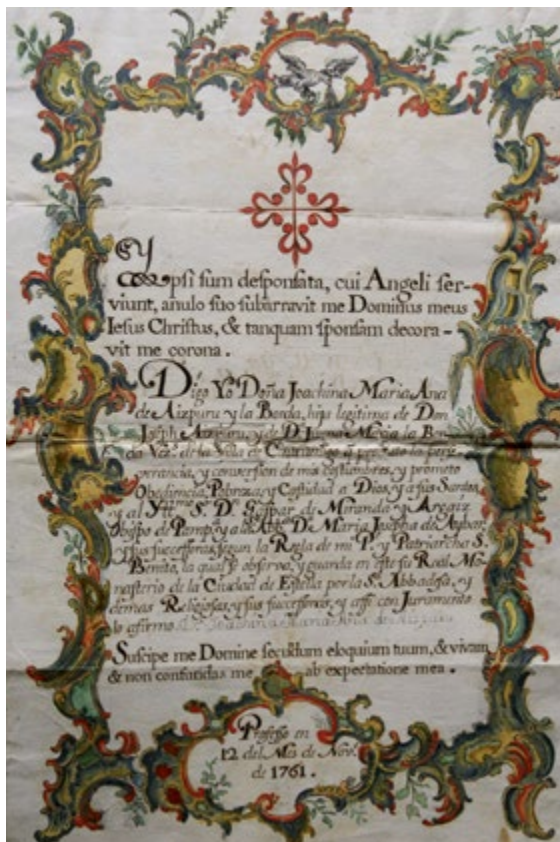 Ipsi sum desponsata, cui Angeli ser-
viunt, anulo suo subarravit me Dominus meus
Iesus Christus, & tanquam sponsam decora-
vit me corona.
Digo Yo Doña Joachina Maria Ana
de Aizpuru y la Borda, hija legitima de Don
Joseph Aizpuru, y de Dª Juana Maria la Bor-
da Vezs. de la Villa de
verancia, y conversion de mis costumbres, y prometo
Obediencia, Pobreza, y Castidad a Dios, y a sus Santos,
y al Yttmo. S. D. Gaspar de Miranda y Argaiz
Obispo de Pamp. y a la Abb. Dª Maria Josepha de
y sus successoras, segun la Regla de mi P. y Patriarcha S.
Benito, la qual se observa, y guarda en este su Real Mo-
nasterio de la Ciudad de Estella por la Sª Abbadesa, y
demas Religiosas, y sus successoras, y assi con Juramento
lo afirmo. Dª Joachina Maria Ana de Aizpuru
Suscipe me Domine secundum eloquium tuum, & vivam,
& non confundas me ab expectatione mea.
Professo en
12 del Mes de Nov.
de 1761.